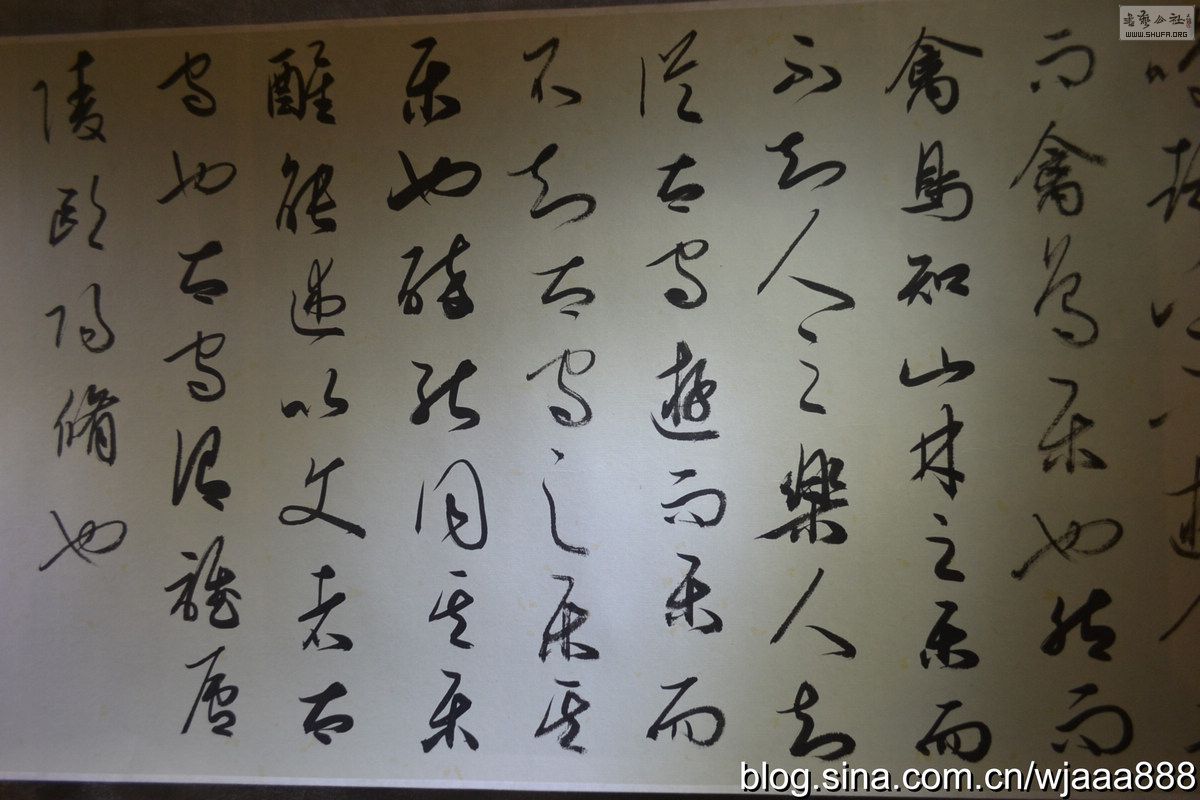 而禽鳥樂也然而
禽鳥知山林之樂而
不知人之樂人知
從太守遊而樂而
不知太守之樂其
樂也醉能同其樂
醒能述以文者太
守也太守謂誰廬
陵歐陽脩也
書藝公社
WWW.SHUFA.ORG
blog.sina.com.cn/wjaaa888